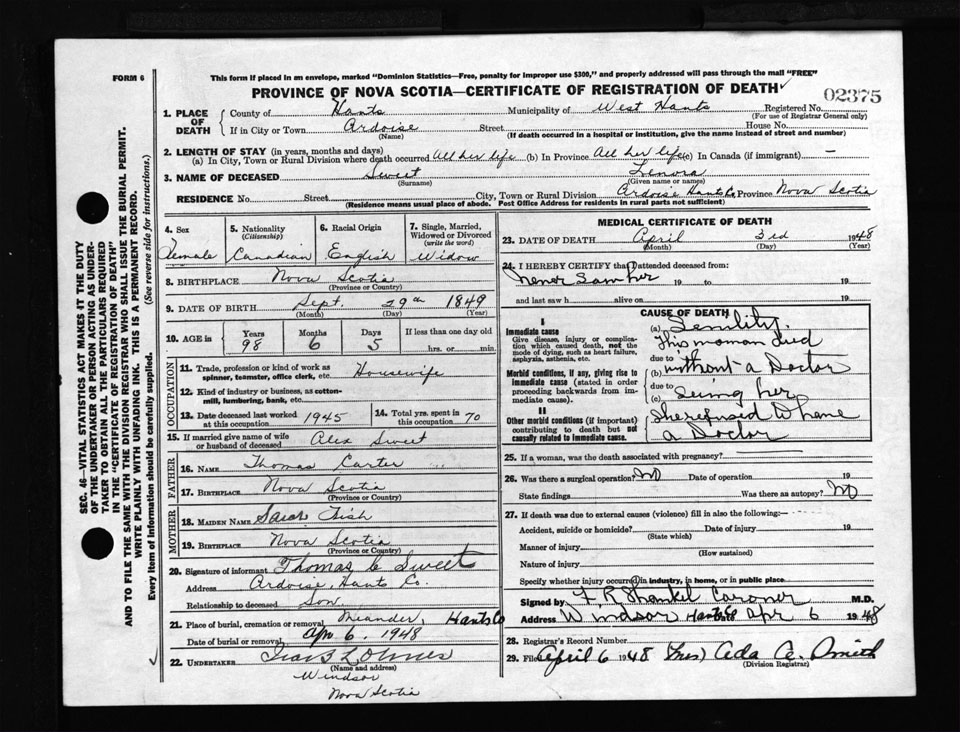 FORM 6
This form if placed in an envelope, marked "Dominion Statistics—Free, penalty for improper use $300," and properly addressed will pass through the mail "FREE"
PROVINCE OF NOVA SCOTIA—CERTIFICATE OF REGISTRATION OF DEATH
02375
1. PLACE OF DEATH County of Hants Municipality of West Hants Registered No.
(For use of Registrar General only)
If in City or Town Ardoise Street House No.
(Name) (If death occurred in a hospital or institution, give the name instead of street and number)
2. LENGTH OF STAY (in years, months and days)
(a) In City, Town or Rural Division where death occurred All her life (b) In Province All her life (c) In Canada (if immigrant) —
3. NAME OF DECEASED Sweet Lenora
(Surname) (Given name or names)
RESIDENCE No. Street City, Town or Rural Division Ardoise Hants Co. Province Nova Scotia
(Residence means usual place of abode. Post Office Address for residents in rural parts not sufficient)
4. Sex 5. Nationality (Citizenship) 6. Racial Origin 7. Single, Married, Widowed or Divorced (write the word)
Female Canadian English Widow
8. BIRTHPLACE Nova Scotia
(Province or Country)
9. DATE OF BIRTH Sept. 29th 1849
(Month) (Day) (Year)
10. AGE in Years Months Days If less than one day old
98 6 5 hrs. or min.
OCCUPATION
11. Trade, profession or kind of work as spinner, teamster, office clerk, etc. Housewife
12. Kind of industry or business, as cotton-mill, lumbering, bank, etc.
13. Date deceased last worked at this occupation 1945 14. Total yrs. spent in this occupation 70
15. If married give name of wife or husband of deceased Alex Sweet
FATHER
16. NAME Thomas Carter
17. BIRTHPLACE Nova Scotia
(Province or Country)
MOTHER
18. MAIDEN NAME Sarah Fish
19. BIRTHPLACE Nova Scotia
(Province or Country)
20. Signature of informant Thomas C Sweet
Address Ardoise, Hants Co.
Relationship to deceased Son
21. Place of burial, cremation or removal Meander, Hants Co
Date of burial or removal Apr 6. 1948
22. UNDERTAKER
(Name and address)
Windsor
Nova Scotia
MEDICAL CERTIFICATE OF DEATH
23. DATE OF DEATH April 3rd 1948
(Month) (Day) (Year)
24. I HEREBY CERTIFY that I attended deceased from:
never saw her 19 to 19
and last saw h alive on 19
CAUSE OF DEATH
I
Immediate cause
Give disease, injury or complication which caused death, not the mode of dying, such as heart failure, asphyxia, asthenia, etc.
Morbid conditions, if any, giving rise to immediate cause (stated in order proceeding backwards from immediate cause).
II
Other morbid conditions (if important) contributing to death but not causally related to immediate cause.
(a) Senility.
This woman died
due to
(b) without a Doctor
due to
(c) seeing her
She refused to have
a Doctor
25. If a woman, was the death associated with pregnancy?
26. Was there a surgical operation? No Date of operation 19
State findings Was there an autopsy? No
27. If death was due to external causes (violence) fill in also the following:—
Accident, suicide or homicide? Date of injury 19
(State which)
Manner of injury
(How sustained)
Nature of injury
Specify whether injury occurred in industry, in home, or in public place
Signed by F. R. Shankel Coroner M.D.
Address Windsor Hants Co Date Apr 6 1948
28. Registrar's Record Number
29. Filed April 6 1948 (Mrs) Ada A. Smith
(Division Registrar)
SEC. 46—VITAL STATISTICS ACT MAKES AT THE DUTY
OF THE UNDERTAKER OR PERSON ACTING AS UNDER-
TAKER TO OBTAIN ALL THE PARTICULARS REQUIRED
IN THE "CERTIFICATE OF REGISTRATION OF DEATH"
AND TO FILE THE SAME WITH THE DIVISION REGISTRAR WHO SHALL ISSUE THE BURIAL PERMIT.
WRITE PLAINLY WITH UNFADING INK. THIS IS A PERMANENT RECORD.
Every item of information should be carefully supplied. (See reverse side for instructions.)